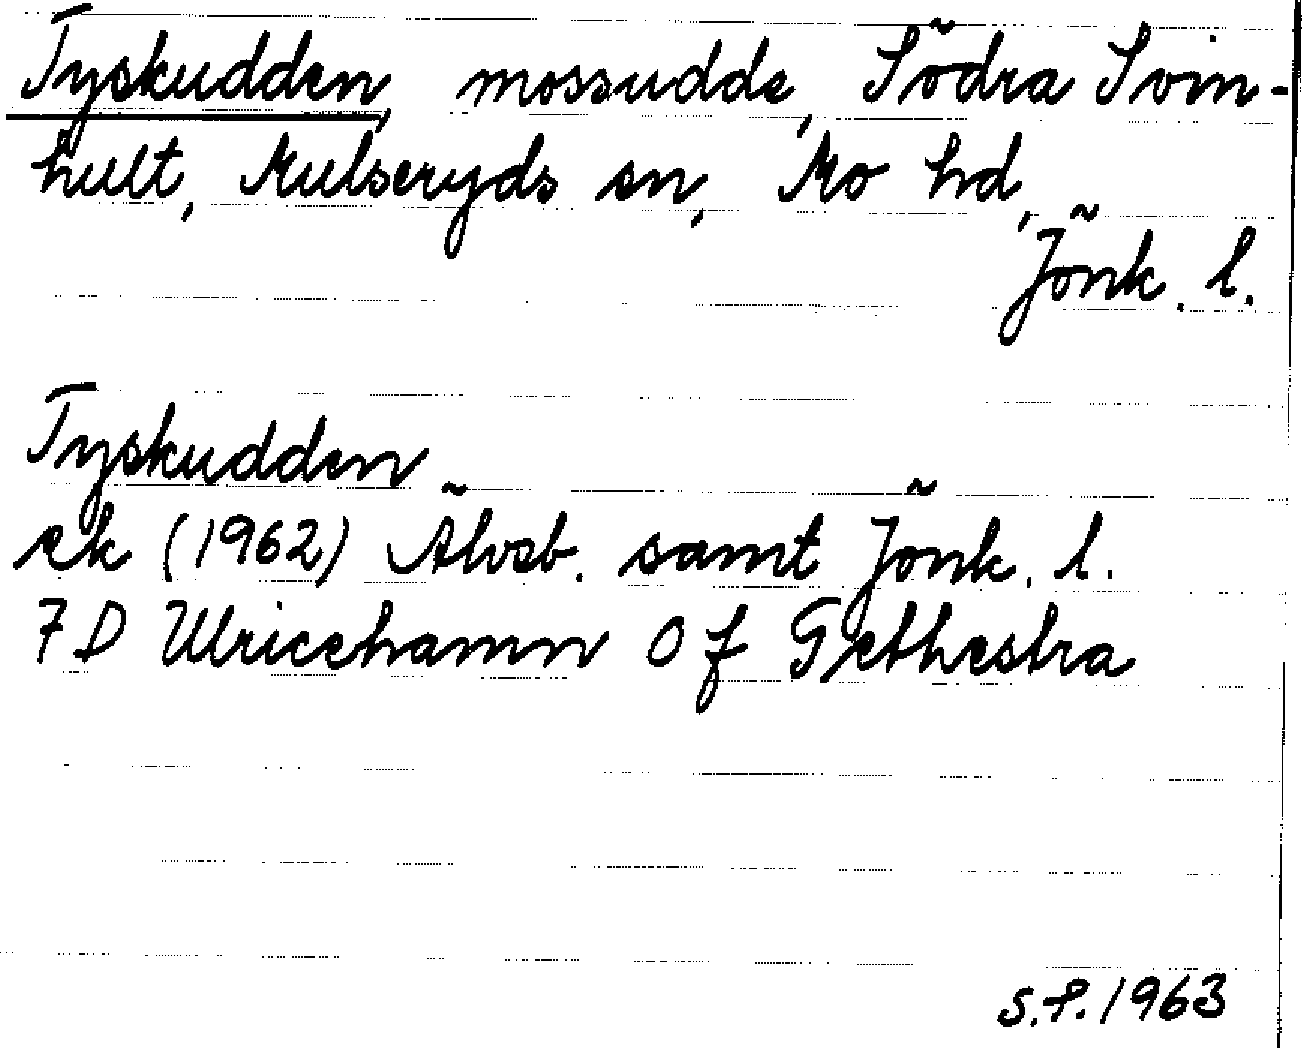 Tyskudden, mossudde, Södra Svin-
hult, Mulseryds sn, Mo hd,
Jönk. l.
Tyskudden
ek (1962) Älvsb. samt Jönk. l.
7 D Ulricehamn 0 f Gethestra
S.F. 1963